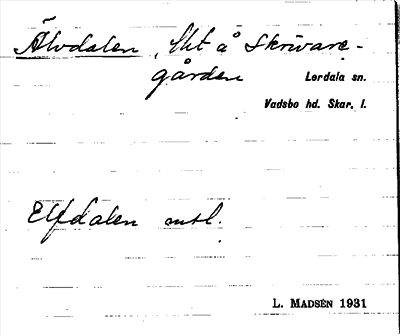 Älvdalen, tht å Skrivare-
gården Lerdala sn.
Vadsbo hd. Skar. l.
Elfdalen mtl.
L. MADSÉN 1931